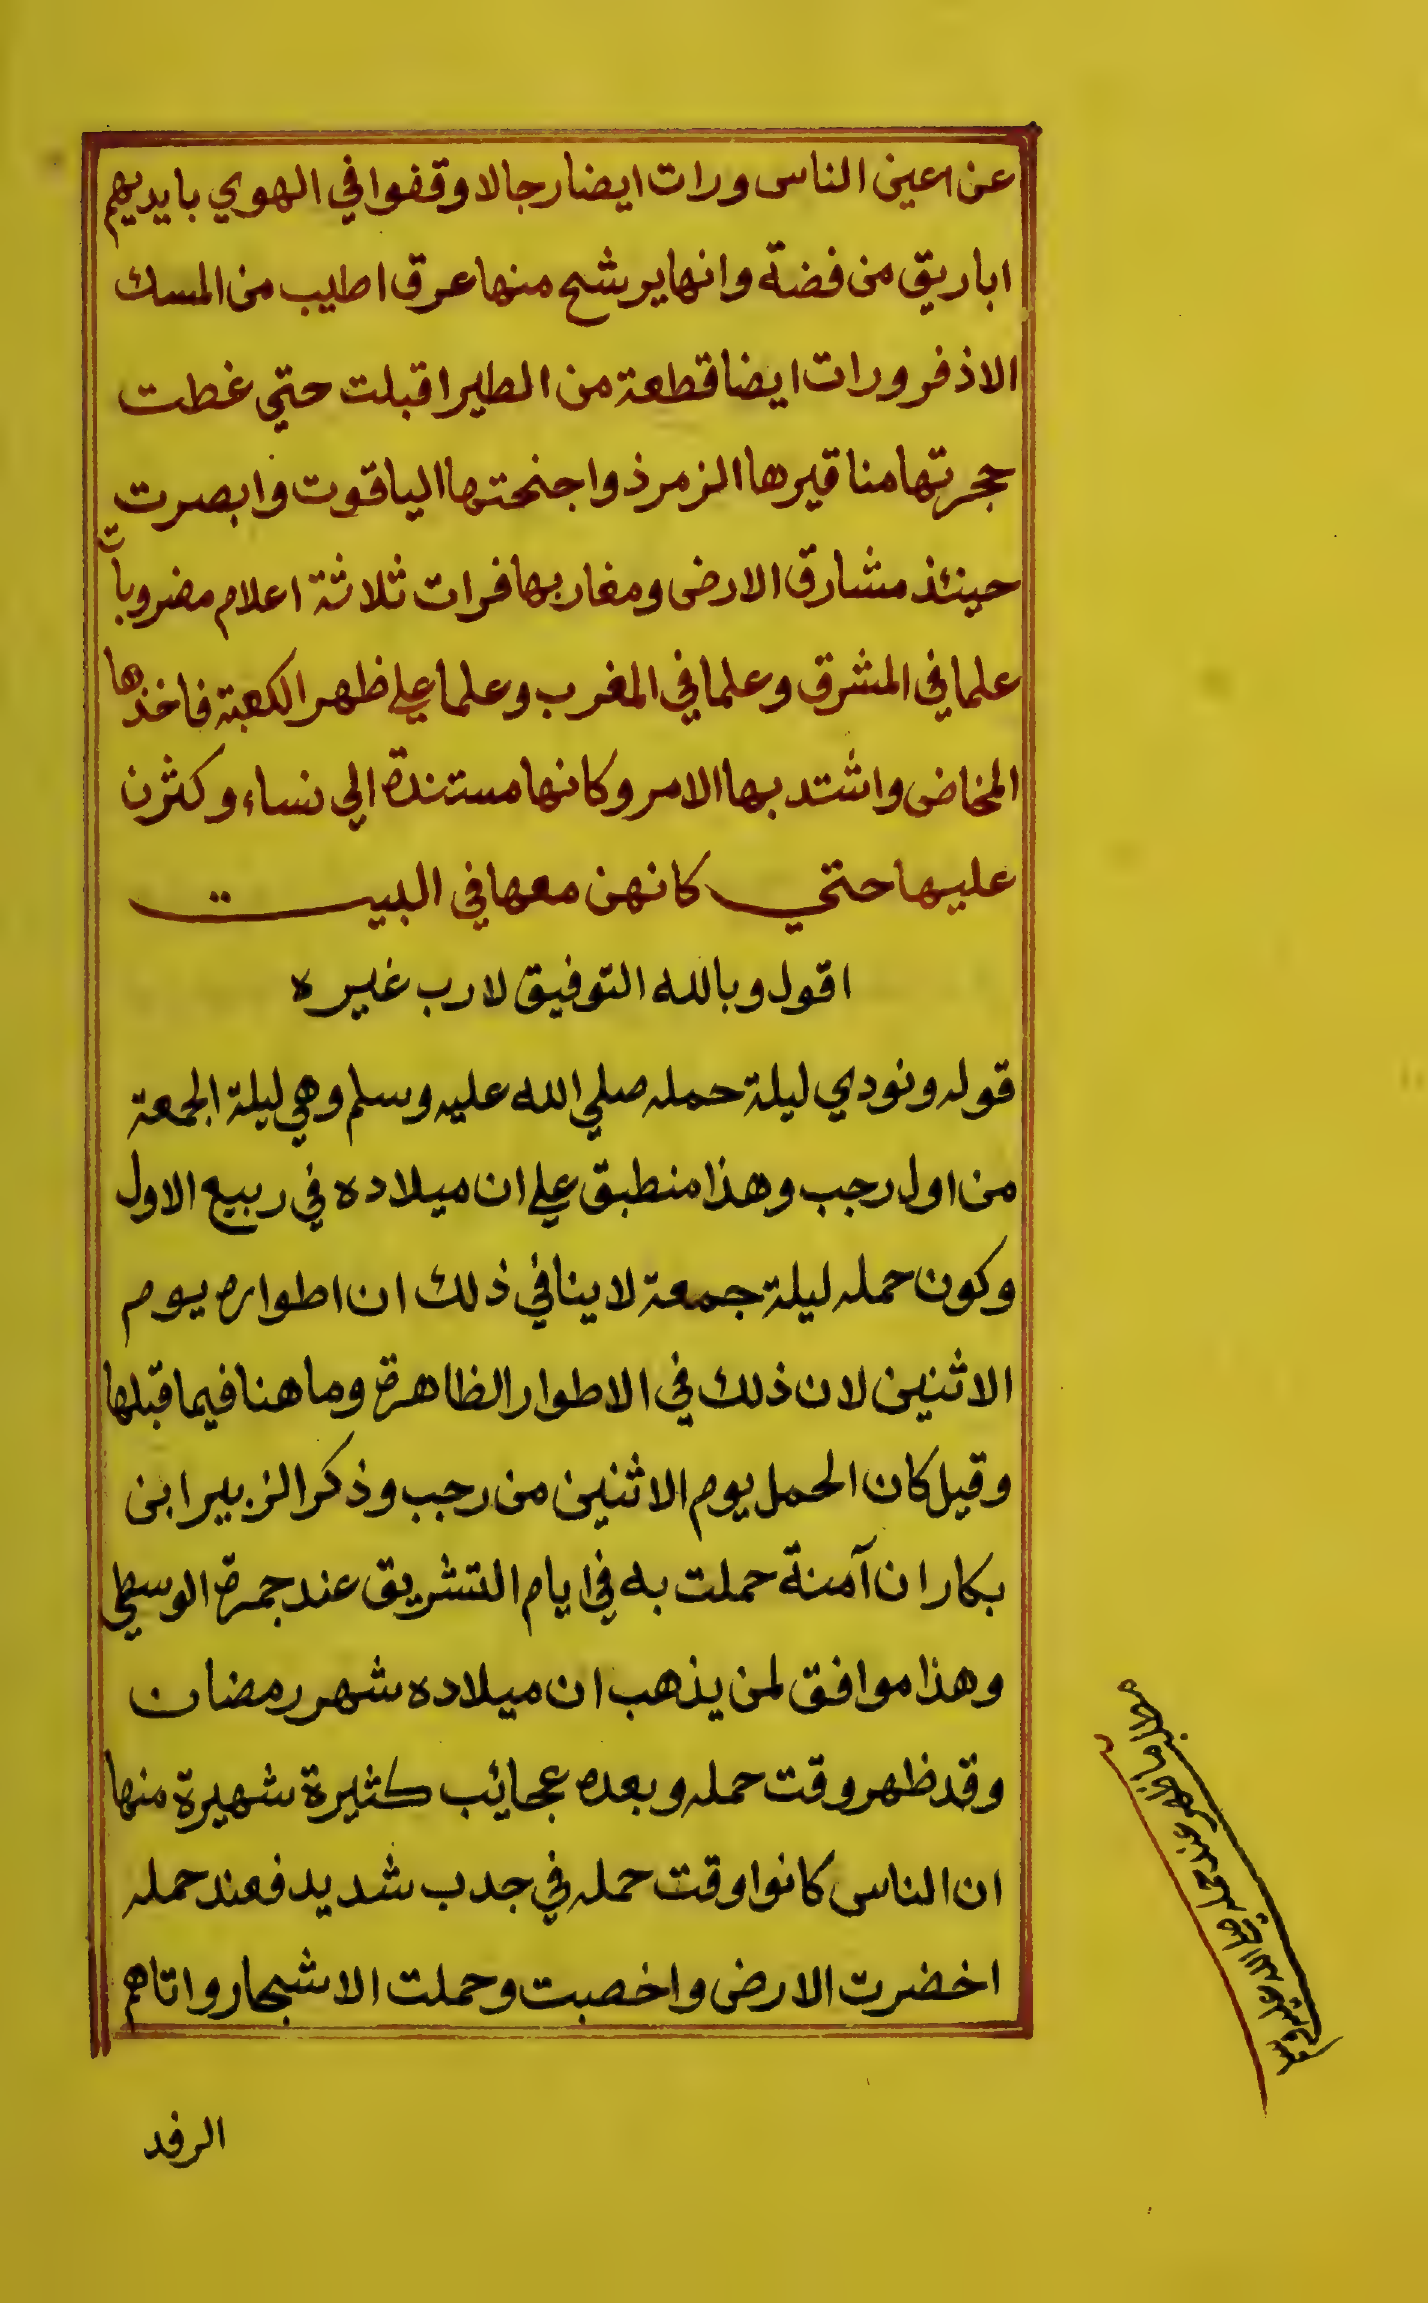 عن اعين الناس ورات ايضا رجالا وقفوا في الهوي بايديهم
اباريق من فضة وانها يرشح منها عرق اطيب من المسك
الاذفر ورات ايضا قطعة من الطير اقبلت حتي غطت
حجرتها مناقيرها الزمرذ واجنحتها الياقوت وابصرت
حينئذ مشارق الارض ومغاربها فرات ثلاثة اعلام مضروبات
علما في المشرق وعلما في المغرب وعلما علي ظهر الكعبة فاخذها
المخاض واشتد بها الامر وكانها مستندة الي نساء وكثرن
عليها حتي كانهن معها في البيت
اقول وبالله التوفيق لا رب غيره
قوله ونودي ليلة حمله صلي الله عليه وسلم وهي ليلة الجمعة
من اول رجب وهذا منطبق علي ان ميلاده في ربيع الاول
وكون حمله ليلة جمعة لا ينافي ذلك ان اطواره يوم
الاثنين لان ذلك في الاطوار الظاهرة وما هنا فيما قبلها
وقيل كان الحمل يوم الاثنين من رجب وذكر الزبير ابن
بكار ان آمنة حملت به في ايام التشريق عند جمرة الوسطي
وهذا موافق لمن يذهب ان ميلاده شهر رمضان
وقد ظهر وقت حمله وبعده عجائب كثيرة شهيرة منها
ان الناس كانوا وقت حمله في جدب شديد فعند حمله
اخضرت الارض واخصبت وحملت الاشجار واتاهم
الرفد
صلي الله عليه وسلم